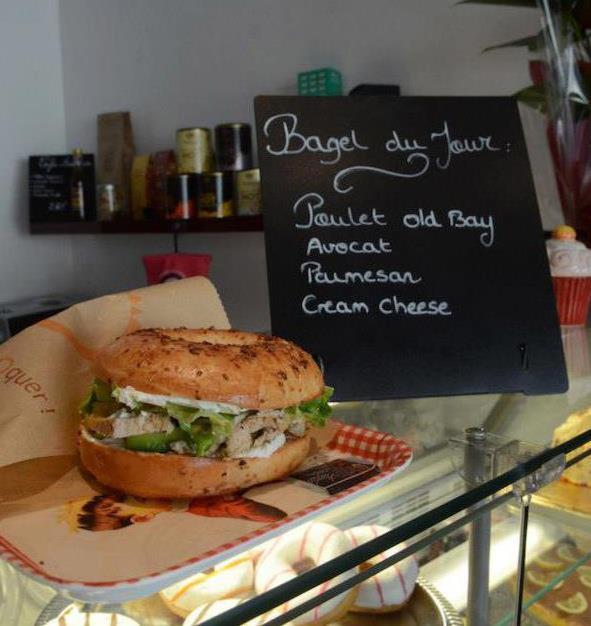 Bagel du Jour:
Poulet old Bay
Avocat
Parmesan
Cream Cheese
oquer!